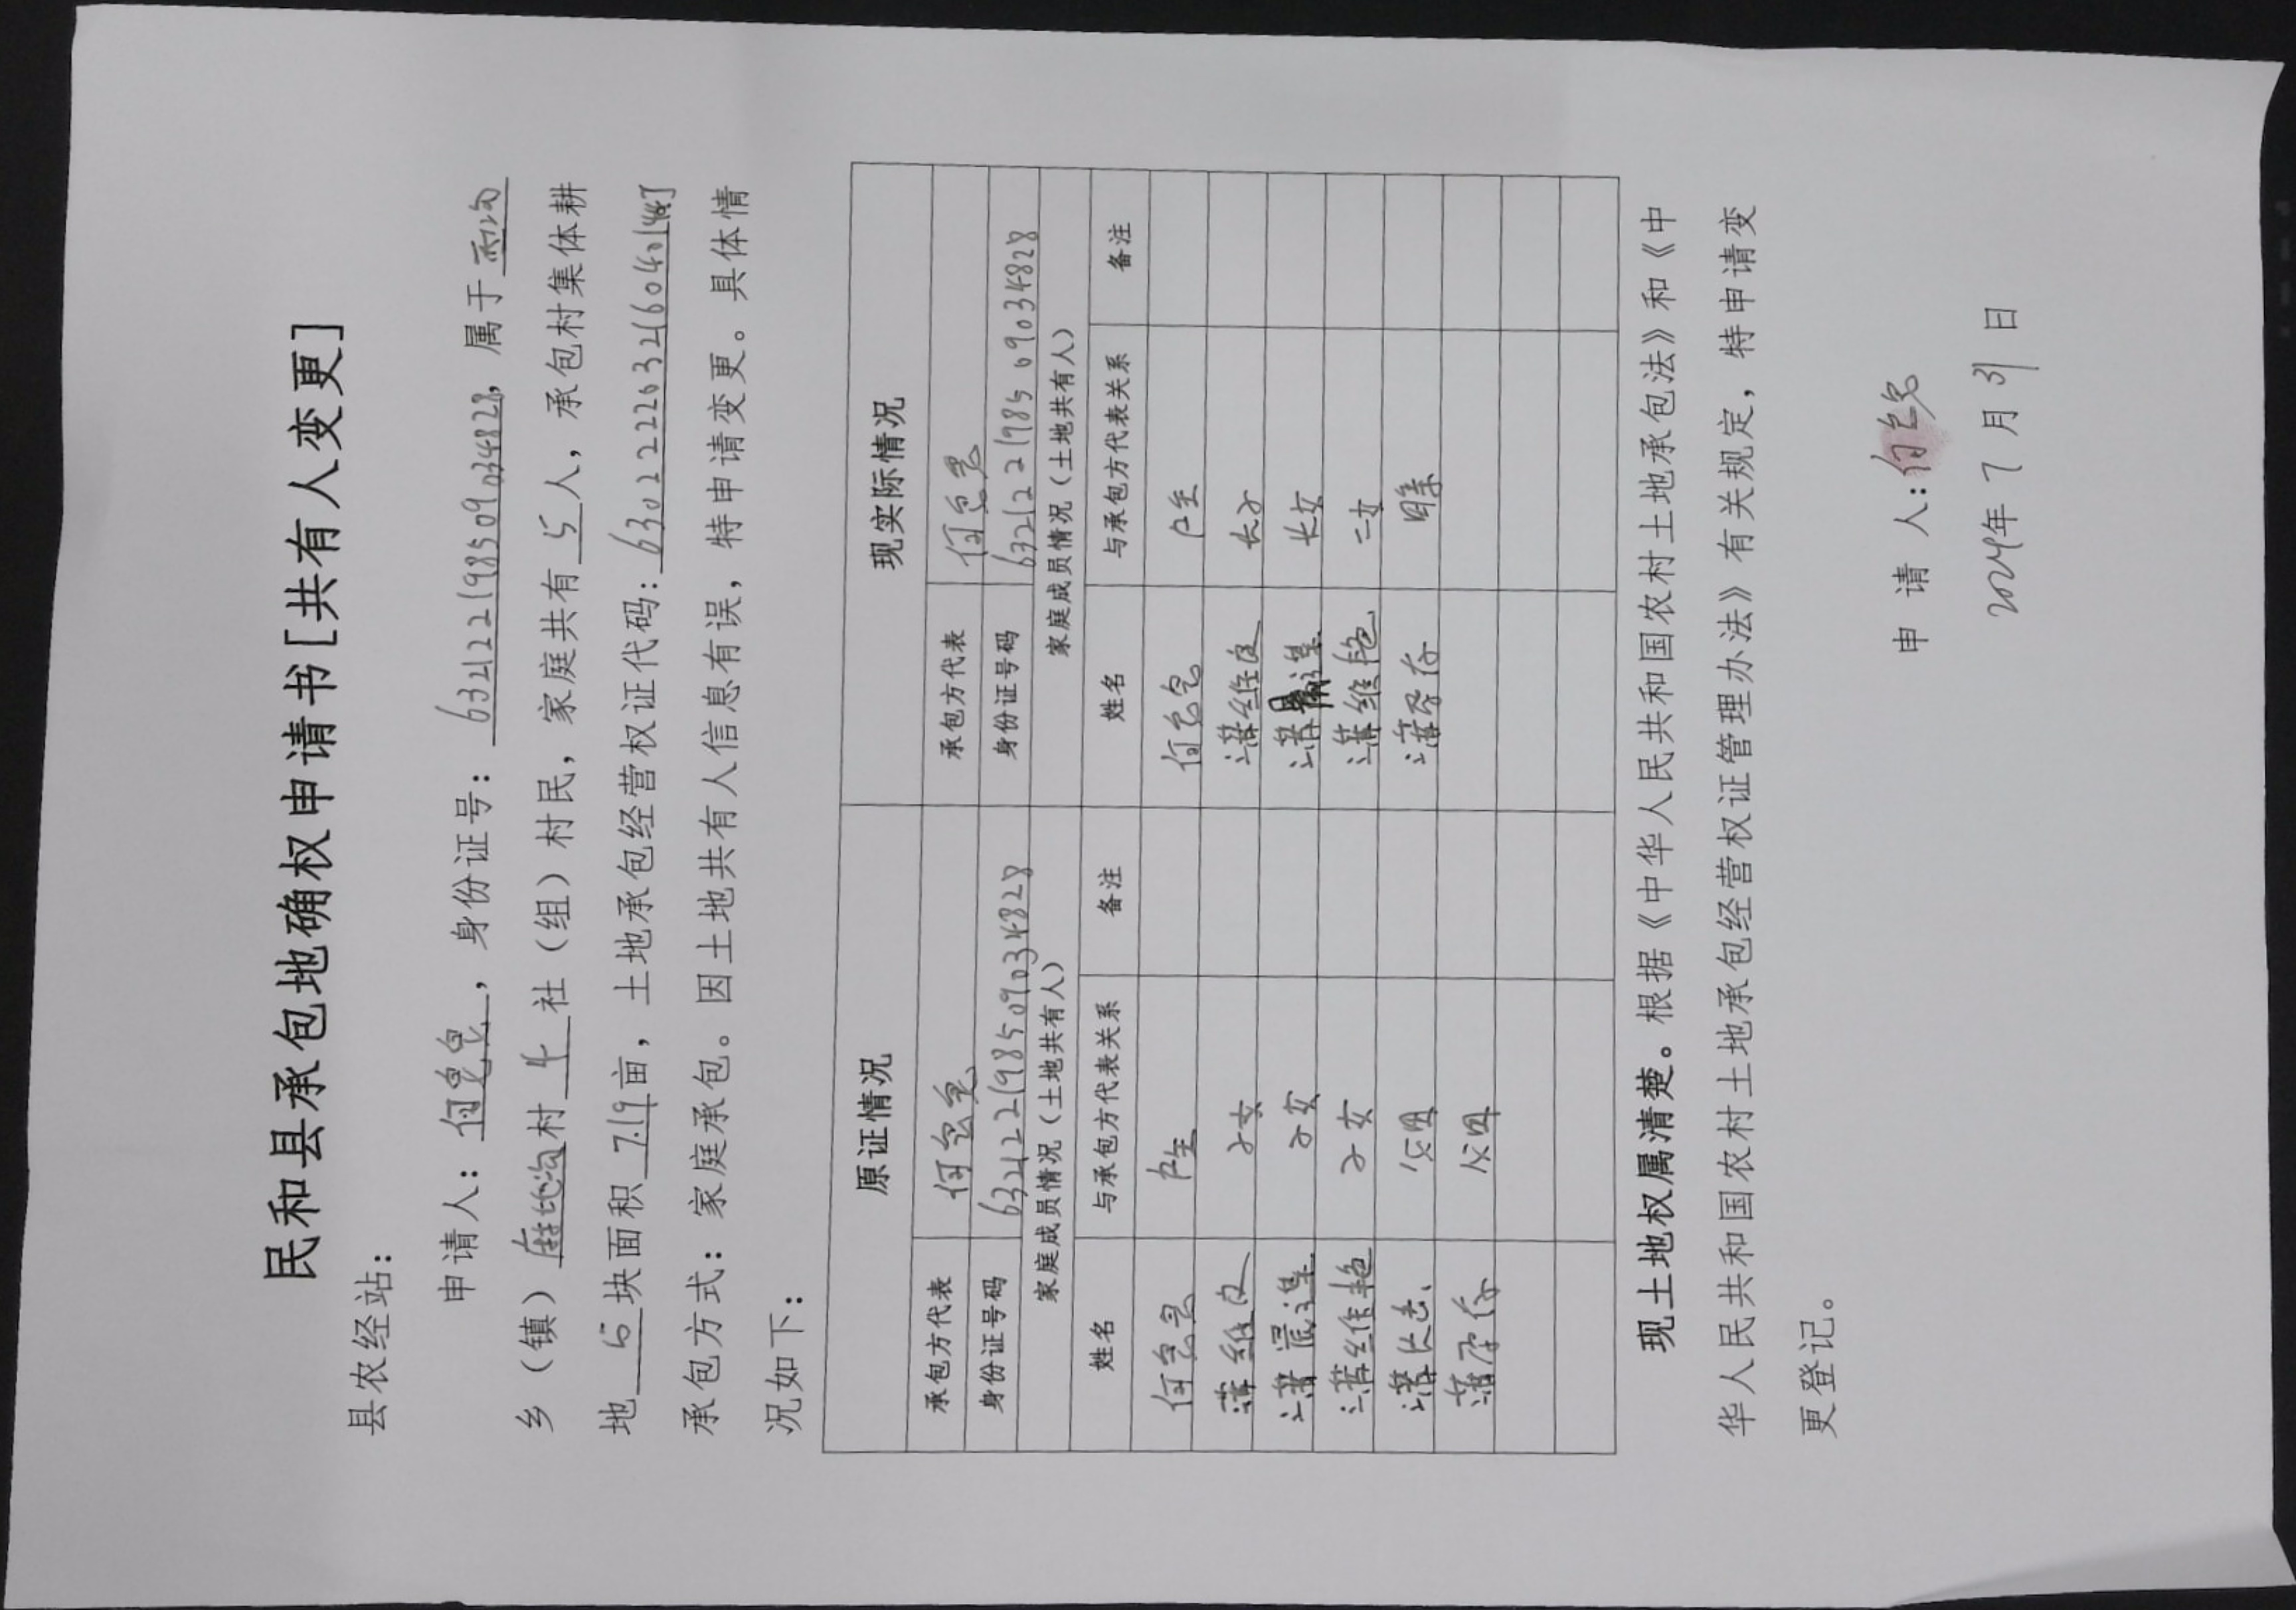 民和县承包地确权申请书[共有人变更]
县农经站：
申请人：何，身份证号：632122198509034828，属于西沟
乡（镇）麻地沟村 4 社（组）村民，家庭共有 5 人，承包村集体耕
地 5 块面积 7.19 亩，土地承包经营权证代码：
承包方式：家庭承包。因土地共有人信息有误，特申请变更。具体情
况如下：
原证情况 现实际情况
承包方代表 何 承包方代表 何
身份证号码 632122198509034828 身份证号码 632122198509034828
家庭成员情况（土地共有人） 家庭成员情况（土地共有人）
姓名 与承包方代表关系 备注 姓名 与承包方代表关系 备注
何 户主 何 户主
满维 子女 满维 长子
满 子女 满 长女
满维艳 子女 满维艳 二女
满长 父母 满存
满存 父母
现土地权属清楚。根据《中华人民共和国农村土地承包法》和《中
华人民共和国农村土地承包经营权证管理办法》有关规定，特申请变
更登记。
申 请 人：何
2024年 7 月 31 日